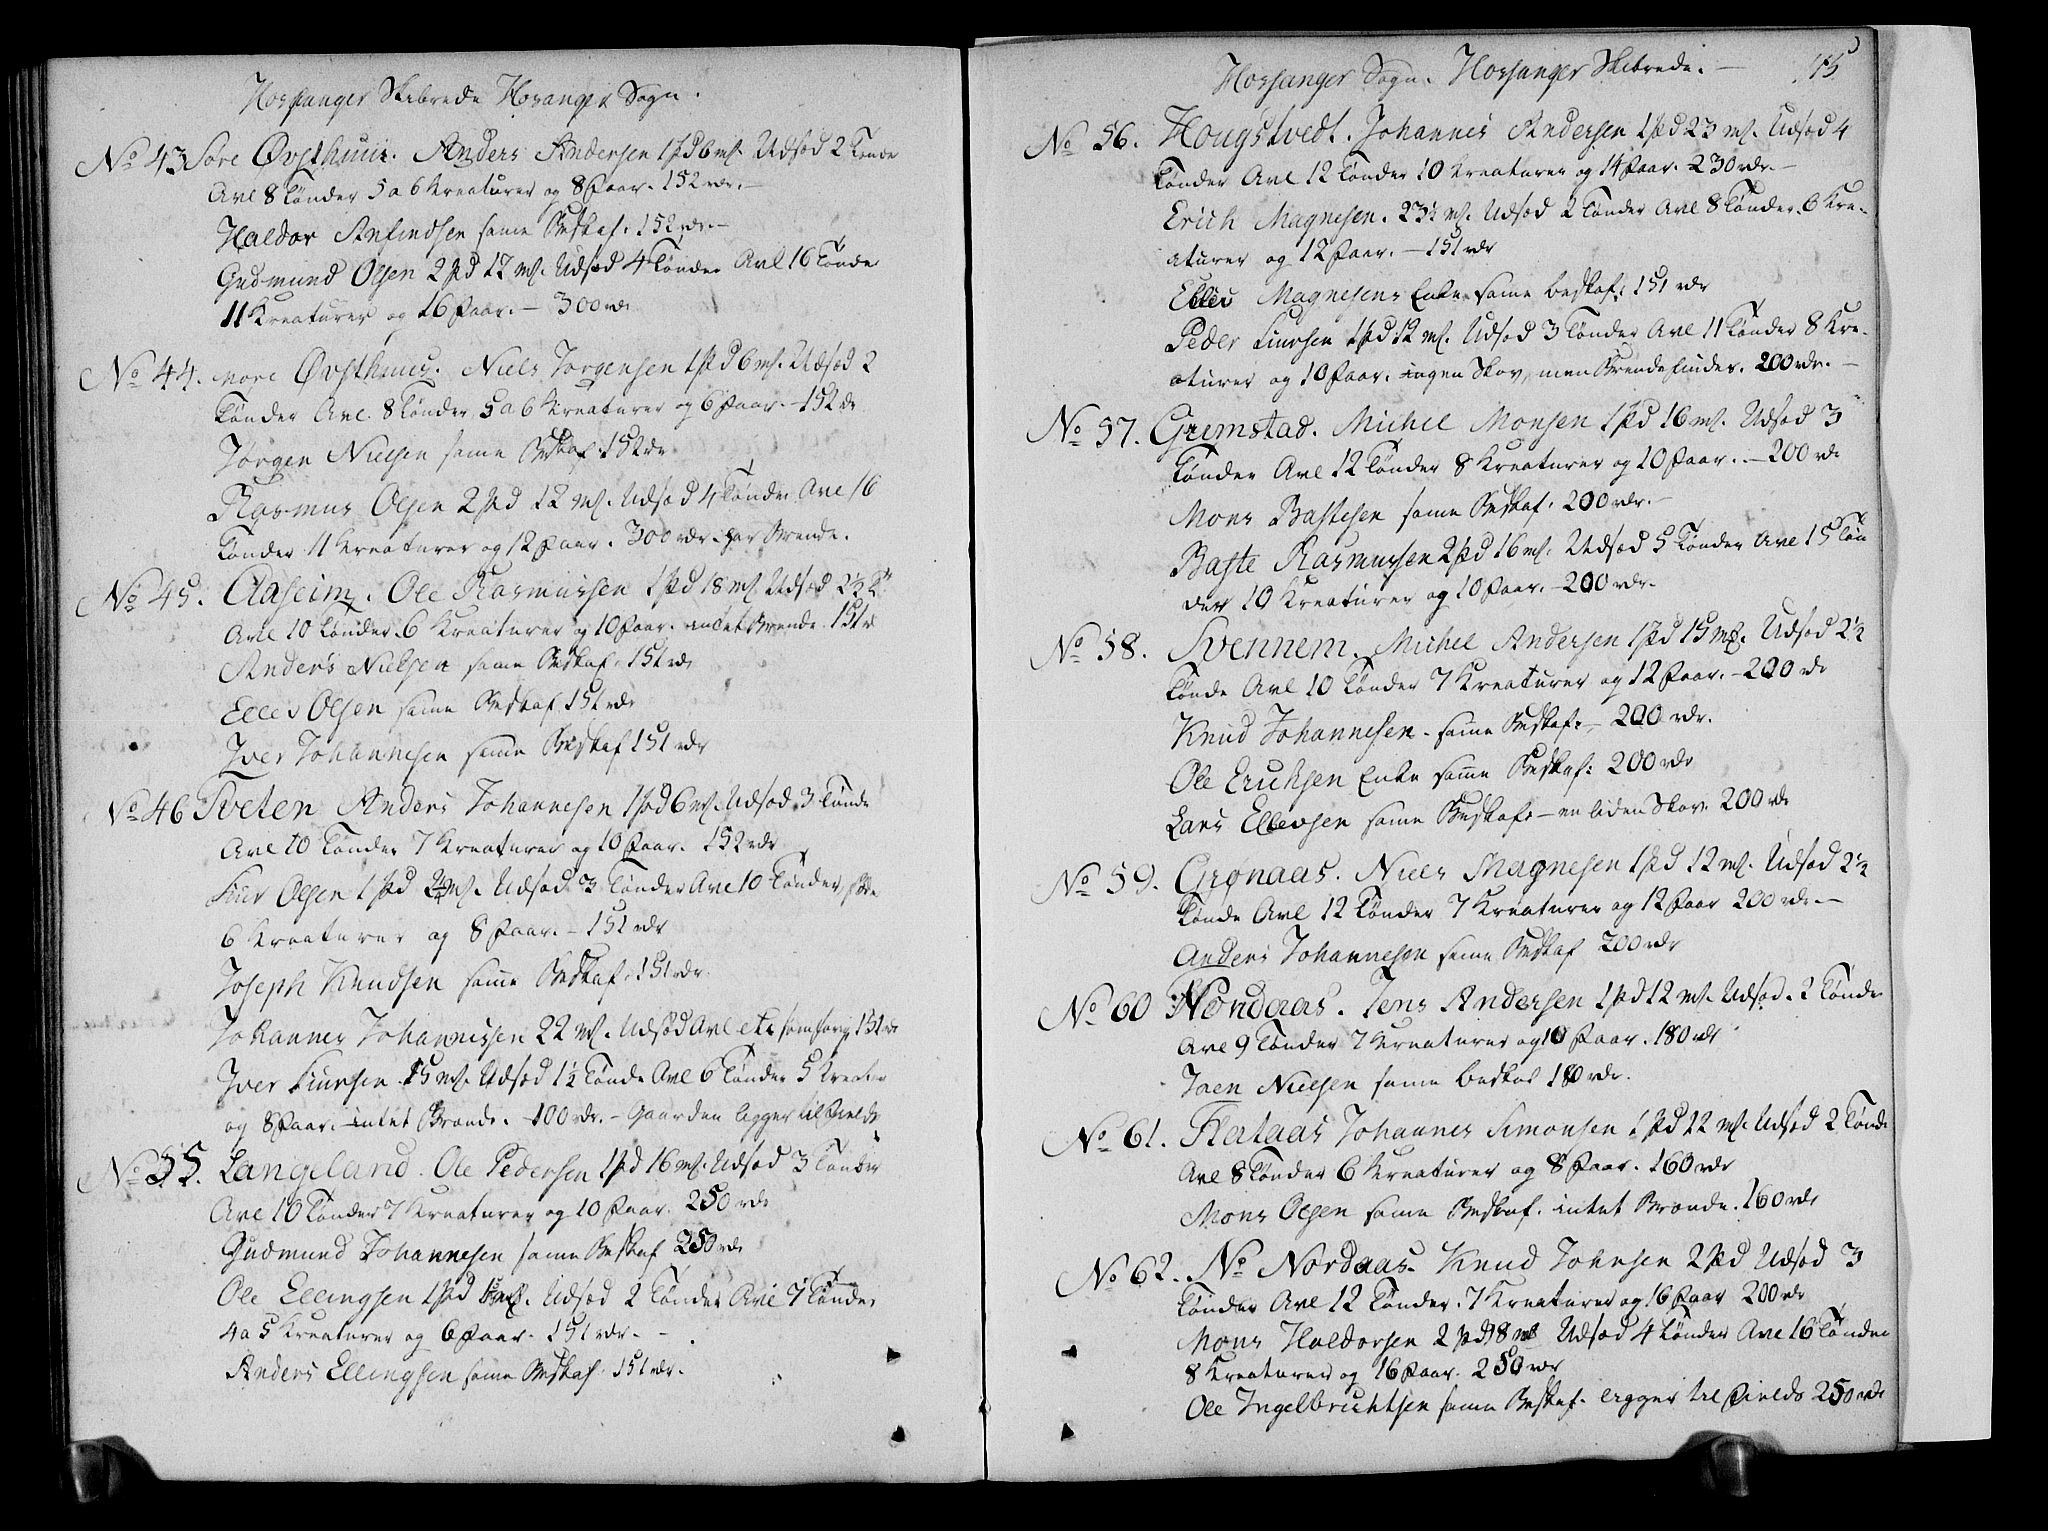 Hossanger Skibrede Hosanger Sogn.
No 43 Søre Øvsthuus. Anders Andersen 1 Pd 6 mk. Udsød 2 Tønde
Avl 8 Tønder 5 a 6 Kreaturer og 8 Faar. 152 rdr.
Haldor Anfindsen same Beskaf. 152 rdr.
Gudmund Olsen 2 Pd 12 mk. Udsød 4 Tønder Avl 16 Tønder
11 Kreaturer og 16 Faar. - 300 rdr
No 44. More Øvsthuus. Niels Jørgensen 1 Pd 6 mk. Udsød 2
Tønder Avl 8 Tønder 5 a 6 Kreaturer og 6 Faar. - 152 rdr
Jørgen Nielsen same Beskaf. 152 rdr
Rasmus Olsen 2 Pd 12 mk. Udsød 4 Tønder Avl 16
Tønder 11 Kreaturer og 12 Faar. 300 rdr. har Brende.
No 45. Aaseim. Ole Rasmussen 1 Pd 18 mk Udsød 2½ Tr
Avl 10 Tønder 6 Kreaturer og 10 Faar. intet Brende 151 r
Anders Nielsen same Beskaf. 151 rdr
Elles Olsen same Beskaf 151 rdr
Iver Johannesen same Beskaf 151 rdr
No 46 Tveten Anders Johannesen 1 Pd 6 mk. Udsød 3 Tønde
Avl 10 Tønder 7 Kreaturer og 10 Faar. 152 rdr
Siur Olsen 1 Pd mk. Udsød 3 Tønder Avl 10 Tønder,
6 Kreaturer og 8 Faar. - 151 rdr
Joseph Knudsen same Beskaf. 151 rdr.
Johannes Johannessen 22 mk. Udsød Avl etc som forig 151 rdr
Iver Siursen 15 mk. Udsød 1½ Tønde Avl 6 Tønder 5 Kreatur
og 8 Faar. intet Brende. 100 rdr. - Gaarden ligger til Fields
No 55. Langeland. Ole Pedersen 1 Pd 16 mk. Udsød 3 Tønder
Avl 10 Tønder 7 Kreaturer og 10 Faar. 250 rdr
Gudmund Johannesen same Beskaf 250 rdr
Ole Ellingsen 1 Pd mk. Udsød 2 Tønder Avl 7 Tønder
4 a 5 Kreaturer og 6 Faar. 151 rdr. -
Anders Ellingsen same Beskaf. 151 rdr.
Hossanger Sogn. Hossanger Skibrede. - 75
No 56. Hougstvedt. Johannes Andersen 1 Pd 23 mk. Udsød 4
Tønder Avl 12 Tønder 10 Kreaturer og 14 Faar. 230 rdr. -
Erich Magnesen. 23½ mk. Udsød 2 Tønder Avl 8 Tønder. 6 Kre-
aturer og 12 Faar. - 151 rdr
Ellev Magnesens Enke same beskaf: 151 rdr
Peder Siursen 1 Pd 12 mk. Udsød 3 Tønder Avl 11 Tønder 8 Kre-
aturer og 10 Faar. ingen Skov, men Brende findes. 200 rdr. -
No 57. Gremstad. Michel Monsen 1 Pd 16 mk. Udsød 3
Tønder Avl 12 Tønder 8 Kreaturer og 10 Faar. - 200 rdr
Mons Bastesen same Beskaf. 200 rdr. -
Baste Rasmussen 2 Pd 16 mk. Udsød 5 Tønder Avl 15 Tøn
der 10 Kreaturer og 10 Faar. - 200 rdr.
No 58. Svennem. Michel Andersen 1 Pd 15 mk. Udsød 2½
Tønde Avl 10 Tønder 7 Kreaturer og 12 Faar. - 200 rdr
Knud Johannesen. same Beskaf: - 200 rdr.
Ole Erichsen Enke same Beskaf: 200 rdr
Lars Ellevsen same Beskaf: - en liden Skov 200 rdr
No 59. Grønaas. Niels Magnesen 1 Pd 12 mk. Udsød 2½
Tønde Avl 12 Tønder 7 Kreaturer og 12 Faar 200 rdr. -
Anders Johannesen same Beskaf 200 rdr
No 60 Nordaas. Jens Andersen 1 Pd 12 mk. Udsød. 2 Tønde
Avl 9 Tønder 7 Kreaturer og 10 Faar. 180 rdr
Joen Nielsen same beskaf 180 rdr.
No 61. Flataas Johannes Simonsen 1 Pd 12 mk. Udsød 2 Tønde
Avl 8 Tønder 6 Kreaturer og 8 Faar. 160 rdr
Mons Olsen same Beskaf. intet Brende. 160 rdr
No 62. No Nordaas. Knud Johnsen 2 Pd Udsød 3
Tønder Avl 12 Tønder. 7 Kreaturer og 16 Faar 200 rdr
Mons Haldorsen 2 Pd 18 mk Udsød 4 Tønder Avl 16 Tønder
8 Kreaturer og 16 Faar. 250 rdr
Ole Ingelbrichtsen same Beskaf. ligger til Fields 250 rdr